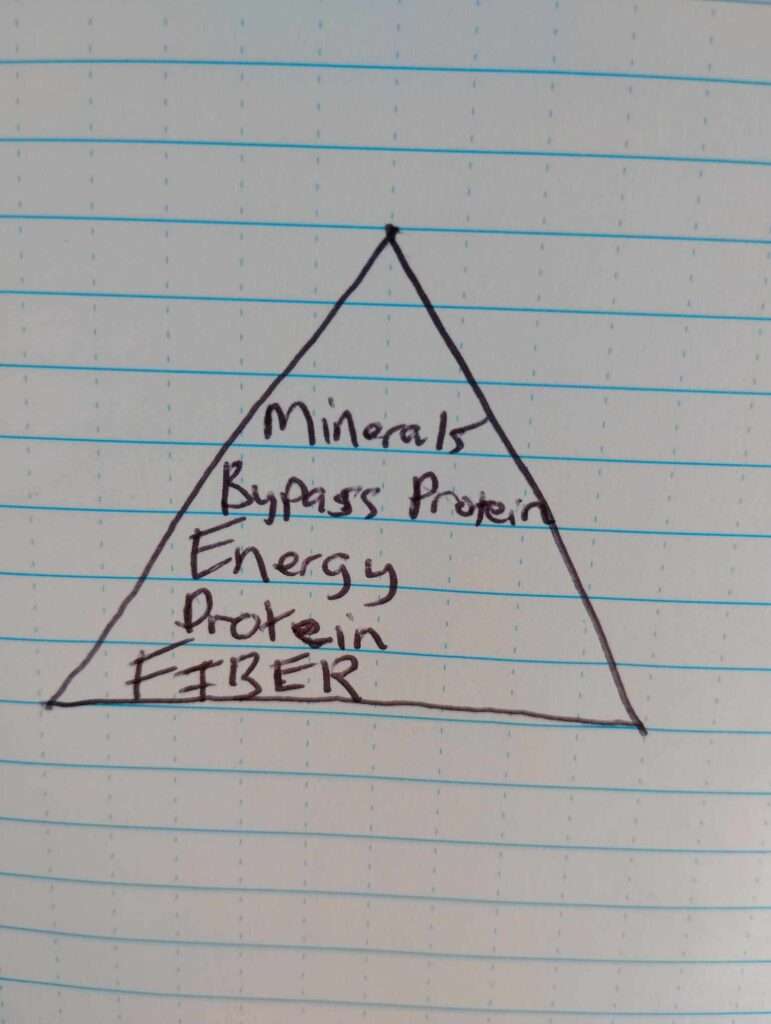 Minerals
Bypass Protein
Energy
Protein
FIBER